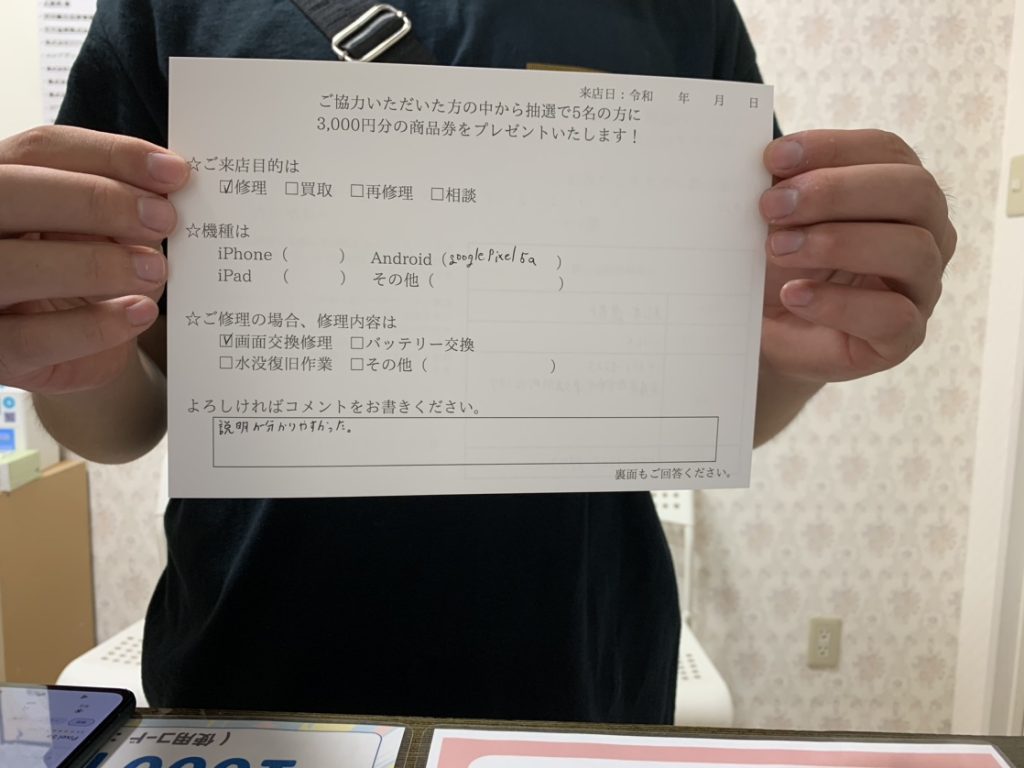 来店日：令和　　年　　月　　日
ご協力いただいた方の中から抽選で5名の方に
3,000円分の商品券をプレゼントいたします！
☆ご来店目的は
☑修理　☐買取　☐再修理　☐相談
☆機種は
iPhone（　　　）　Android（google Pixel 5a　）
iPad　（　　　）　その他（　　　　　　　　）
☆ご修理の場合、修理内容は
☑画面交換修理　☐バッテリー交換
☐水没復旧作業　☐その他（　　　　　　　　）
よろしければコメントをお書きください。
説明が分かりやすかった。
裏面もご回答ください。
（使用コード